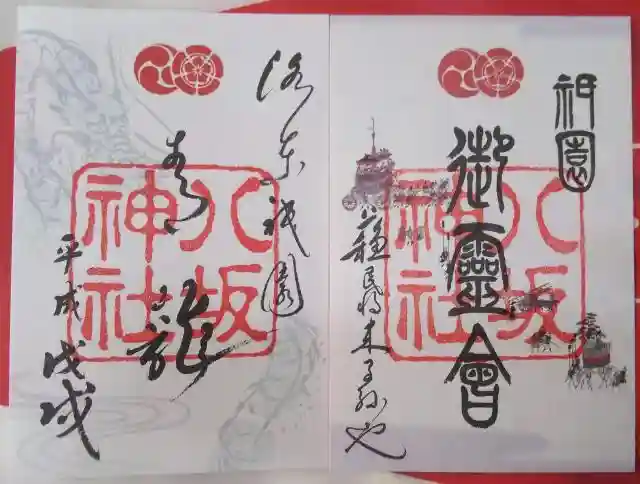 祇園
御靈會
蘇民将来子孫也
八坂
神社
洛東祇園
青龍
平成戊戌
八坂
神社